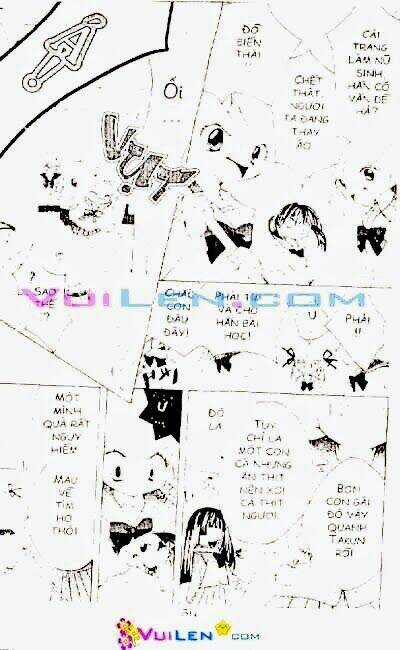 CẢI
TRANG
LÀM NỮ
SINH,
HẮN CÓ
VẤN ĐỀ
HẢ?
ĐỒ
BIẾN
THÁI
!!
CHẾT
THẬT,
NGƯỜI
TA ĐANG
THAY
ÁO
ỐI
...
VỤT
SAO
THẾ
?
PHẢI
!!
Ừ
PHẢI TR
VÀ CHO
HẮN BÀI
HỌC!
CHÁU
CON
ĐÂU
ĐÂY!
VUILEN.COM
HYI
BỌN
CON GÁI
ĐÓ VÂY
QUANH
TAKUN
RỒI
TUY
CHỈ LÀ
MỘT CON
CÁ NHƯNG
ĂN THỊT
NÊN XƠI
CẢ THỊT
NGƯỜI.
ĐÓ
LÀ
Ư
MỘT
MÌNH
QUẢ RẤT
NGUY
HIỂM
MAU
VỀ
TÌM
HỌ
THÔI
VUILEN.COM